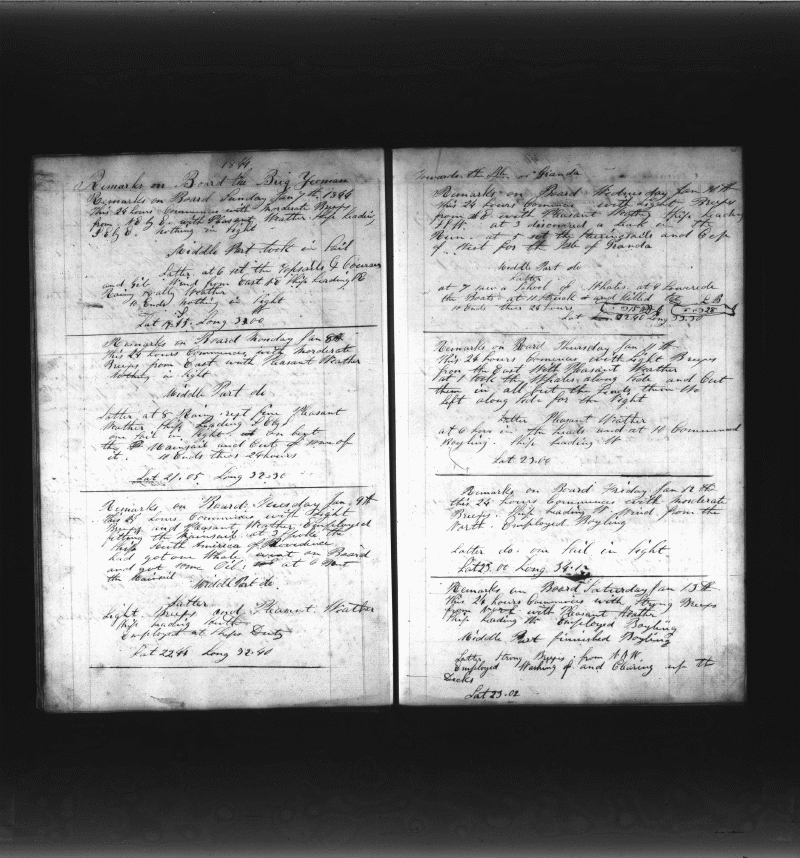 1844
Remarks on Board the Brig Yeoman
Remarks on Board Sunday Jan 7th 1844
This 24 hours Commences with Morderate Breeps
from E by S. with Pleasant Weather Ship heading
S E by E. nothing in Sight
Middle Part took in Sail
Latter at 6 set the Topsails & Courses
and Gib Wind from East Ship heading
Rainy Weather
Ends Nothing in Sight
Lat Long 33.00
Remarks on Board Monday Jan 8th
This 24 hours Commences with Morderate
Breeps from East with Pleasant Weather
Nothing in Sight
Middle Part do
Latter at 8 Rainy. rest fine Pleasant
Weather Ship heading
one Sail in Sight
the Mainsail and Cut of
it. Ends this 24 hours
Lat 21.05 Long 32.30
Remarks on Board Tuesday Jan 9th
This 24 hours Commences with Light
Breeps and Pleasant Weather Employed
fitting the Mainsail at 3 Spoke the
Ship South America of Providence
had got one Whale went on Board
and got some Oil at 6 Bent
the Mainsail
Middle Part do
Latter
Light Breeps and Pleasant Weather
Ship heading South
Employed at Ships Duty
Lat 22.46 Long 32.40
Towards the Isle of Granda
Remarks on Board Wednesday Jan 10th
This 24 hours Commences with Light Breeps
from with Pleasant Weather Ship heading
at 3 discovered a leak in the
Run. at set the Stearingsails and Kept
of West for the Isle of Granda
Middle Part do
Latter
at 7 saw a School of Whales. at 9 Lowerede
the Boats at 11 Struck & and killed
Ends this 24 hours
Lat 22.40 Long 33.30
Remarks on Board Thursday Jan 11th
This 24 hours Commences with Light Breeps
from the East With Pleasant Weather
at 1 took the Whales along Side and Cut
them in all but the heads them We
Left along Side for the Night
Latter Pleasant Weather
at 6 hove in the heads and at 10 Commenced
Boyling. Ship heading W
Lat 23.00
Remarks on Board Friday Jan 12th
This 24 hours Commences with Morderate
Breeps. Ship heading W Wind from the
North. Employed Boyling
Latter do. one Sail in Sight
Lat 23.00 Long 34.10
Remarks on Board Saturday Jan 13th
This 24 hours Commences with Strong Breeps
from with Pleasant Weather
Ship heading W Employed Boyling
Middle Part finnished Boyling
Latter Strong Breeps from N.N.W.
Employed Washing and Clearing up the
Decks
Lat 23.02